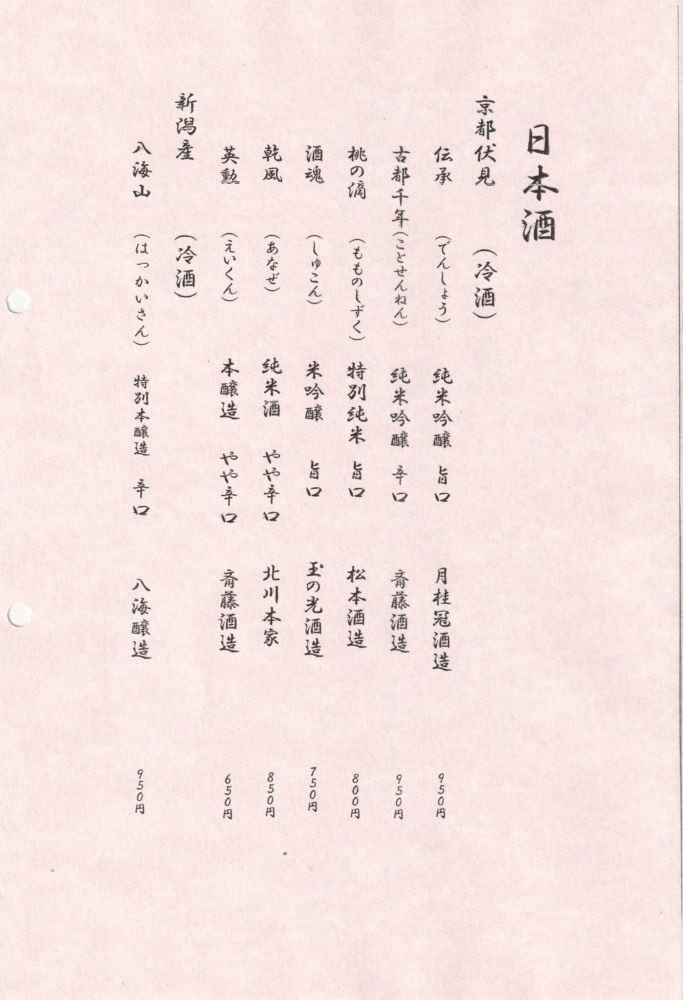 日本酒
京都伏見 (冷酒)
伝承 (でんしょう) 純米吟醸 旨口 月桂冠酒造 950円
古都千年 (ことせんねん) 純米吟醸 辛口 斎藤酒造 950円
桃の滴 (もものしずく) 特別純米 旨口 松本酒造 800円
酒魂 (しゅこん) 米吟醸 旨口 玉の光酒造 750円
乾風 (あなぜ) 純米酒 やや辛口 北川本家 850円
英勲 (えいくん) 本醸造 やや辛口 斎藤酒造 650円
新潟産 (冷酒)
八海山 (はっかいさん) 特別本醸造 辛口 八海醸造 950円